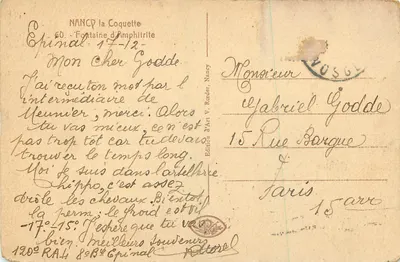 NANCY la Coquette
60. - Fontaine d'Amphitrite
Epinal 17-12-
Mon cher Godde
J'ai reçu ton mot par l'
intermédiaire de
Meunier, merci. Alors
tu vas mieux, ce n'est
pas trop tôt car tu devais
trouver le temps long.
Moi je suis dans l'artillerie
hippo, c'est assez
drôle les chevaux. Bientôt
la perm, le froid est vif
17°-15° J'espère que tu vas
bien. meilleurs souvenirs
120e RA4 8e Bie Epinal
Morel
Nancy
VOSGES
Monsieur
Gabriel Godde
15 Rue Bargue
Paris
15 arr